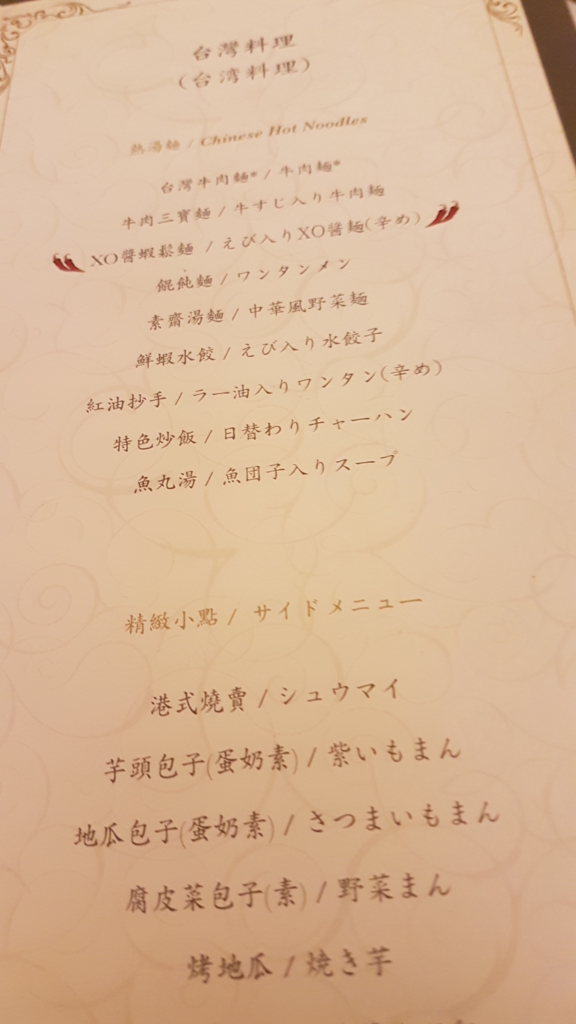 台灣料理
(台湾料理)
熱湯麵 / Chinese Hot Noodles
台灣牛肉麵* / 牛肉麺*
牛肉三寶麵 / 牛すじ入り牛肉麺
XO醬蝦鬆麵 / えび入りXO醬麺(辛め)
餛飩麵 / ワンタンメン
素齋湯麵 / 中華風野菜麺
鮮蝦水餃 / えび入り水餃子
紅油抄手 / ラー油入りワンタン(辛め)
特色炒飯 / 日替わりチャーハン
魚丸湯 / 魚団子入りスープ
精緻小點 / サイドメニュー
港式燒賣 / シュウマイ
芋頭包子(蛋奶素) / 紫いもまん
地瓜包子(蛋奶素) / さつまいもまん
腐皮菜包子(素) / 野菜まん
烤地瓜 / 焼き芋